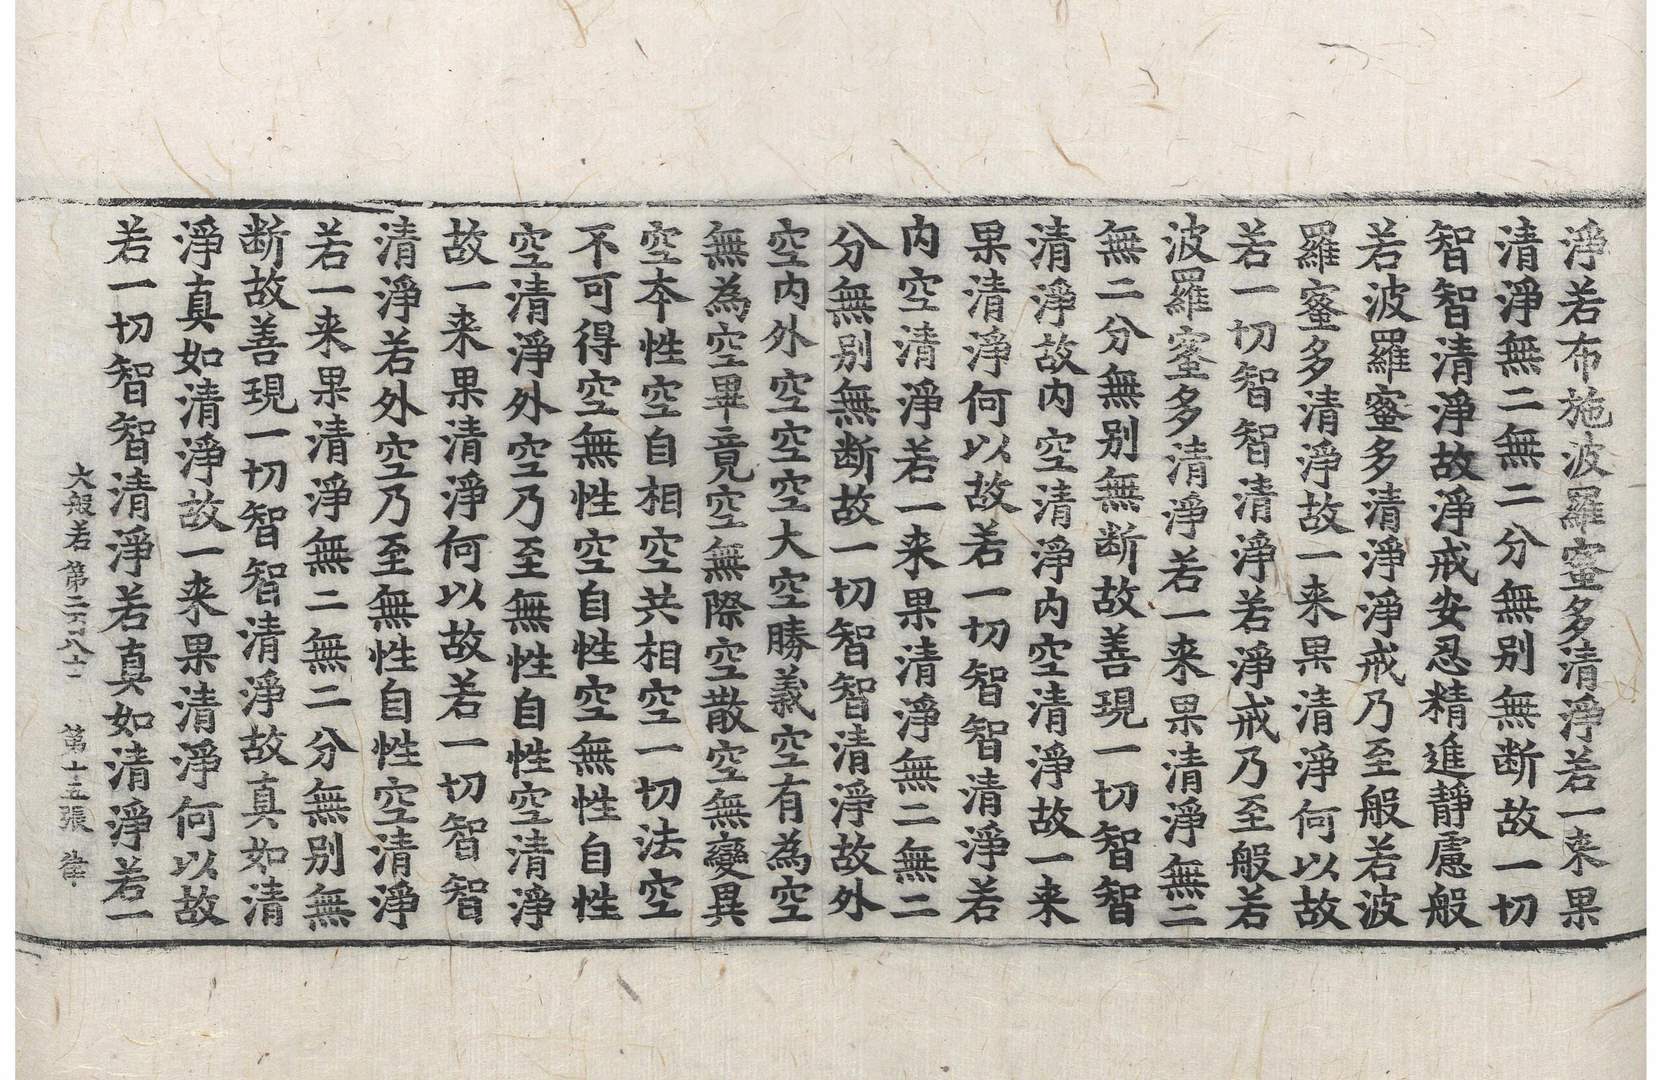 淨若布施波羅蜜多清淨若一来果
清淨無二無二分無別無断故一切
智智清淨故淨戒安忍精進靜慮般
若波羅蜜多清淨淨戒乃至般若波
羅蜜多清淨故一来果清淨何以故
若一切智智清淨若淨戒乃至般若
波羅蜜多清淨若一来果清淨無二
無二分無別無断故善現一切智智
清淨故内空清淨内空清淨故一来
果清淨何以故若一切智智清淨若
内空清淨若一来果清淨無二無二
分無別無断故一切智智清淨故外
空内外空空空大空勝義空有為空
無為空畢竟空無際空散空無變異
空本性空自相空共相空一切法空
不可得空無性空自性空無性自性
空清淨外空乃至無性自性空清淨
故一来果清淨何以故若一切智智
清淨若外空乃至無性自性空清淨
若一来果清淨無二無二分無別無
断故善現一切智智清淨故真如清
淨真如清淨故一来果清淨何以故
若一切智智清淨若真如清淨若一
大般若 第二百八十一 第十五張